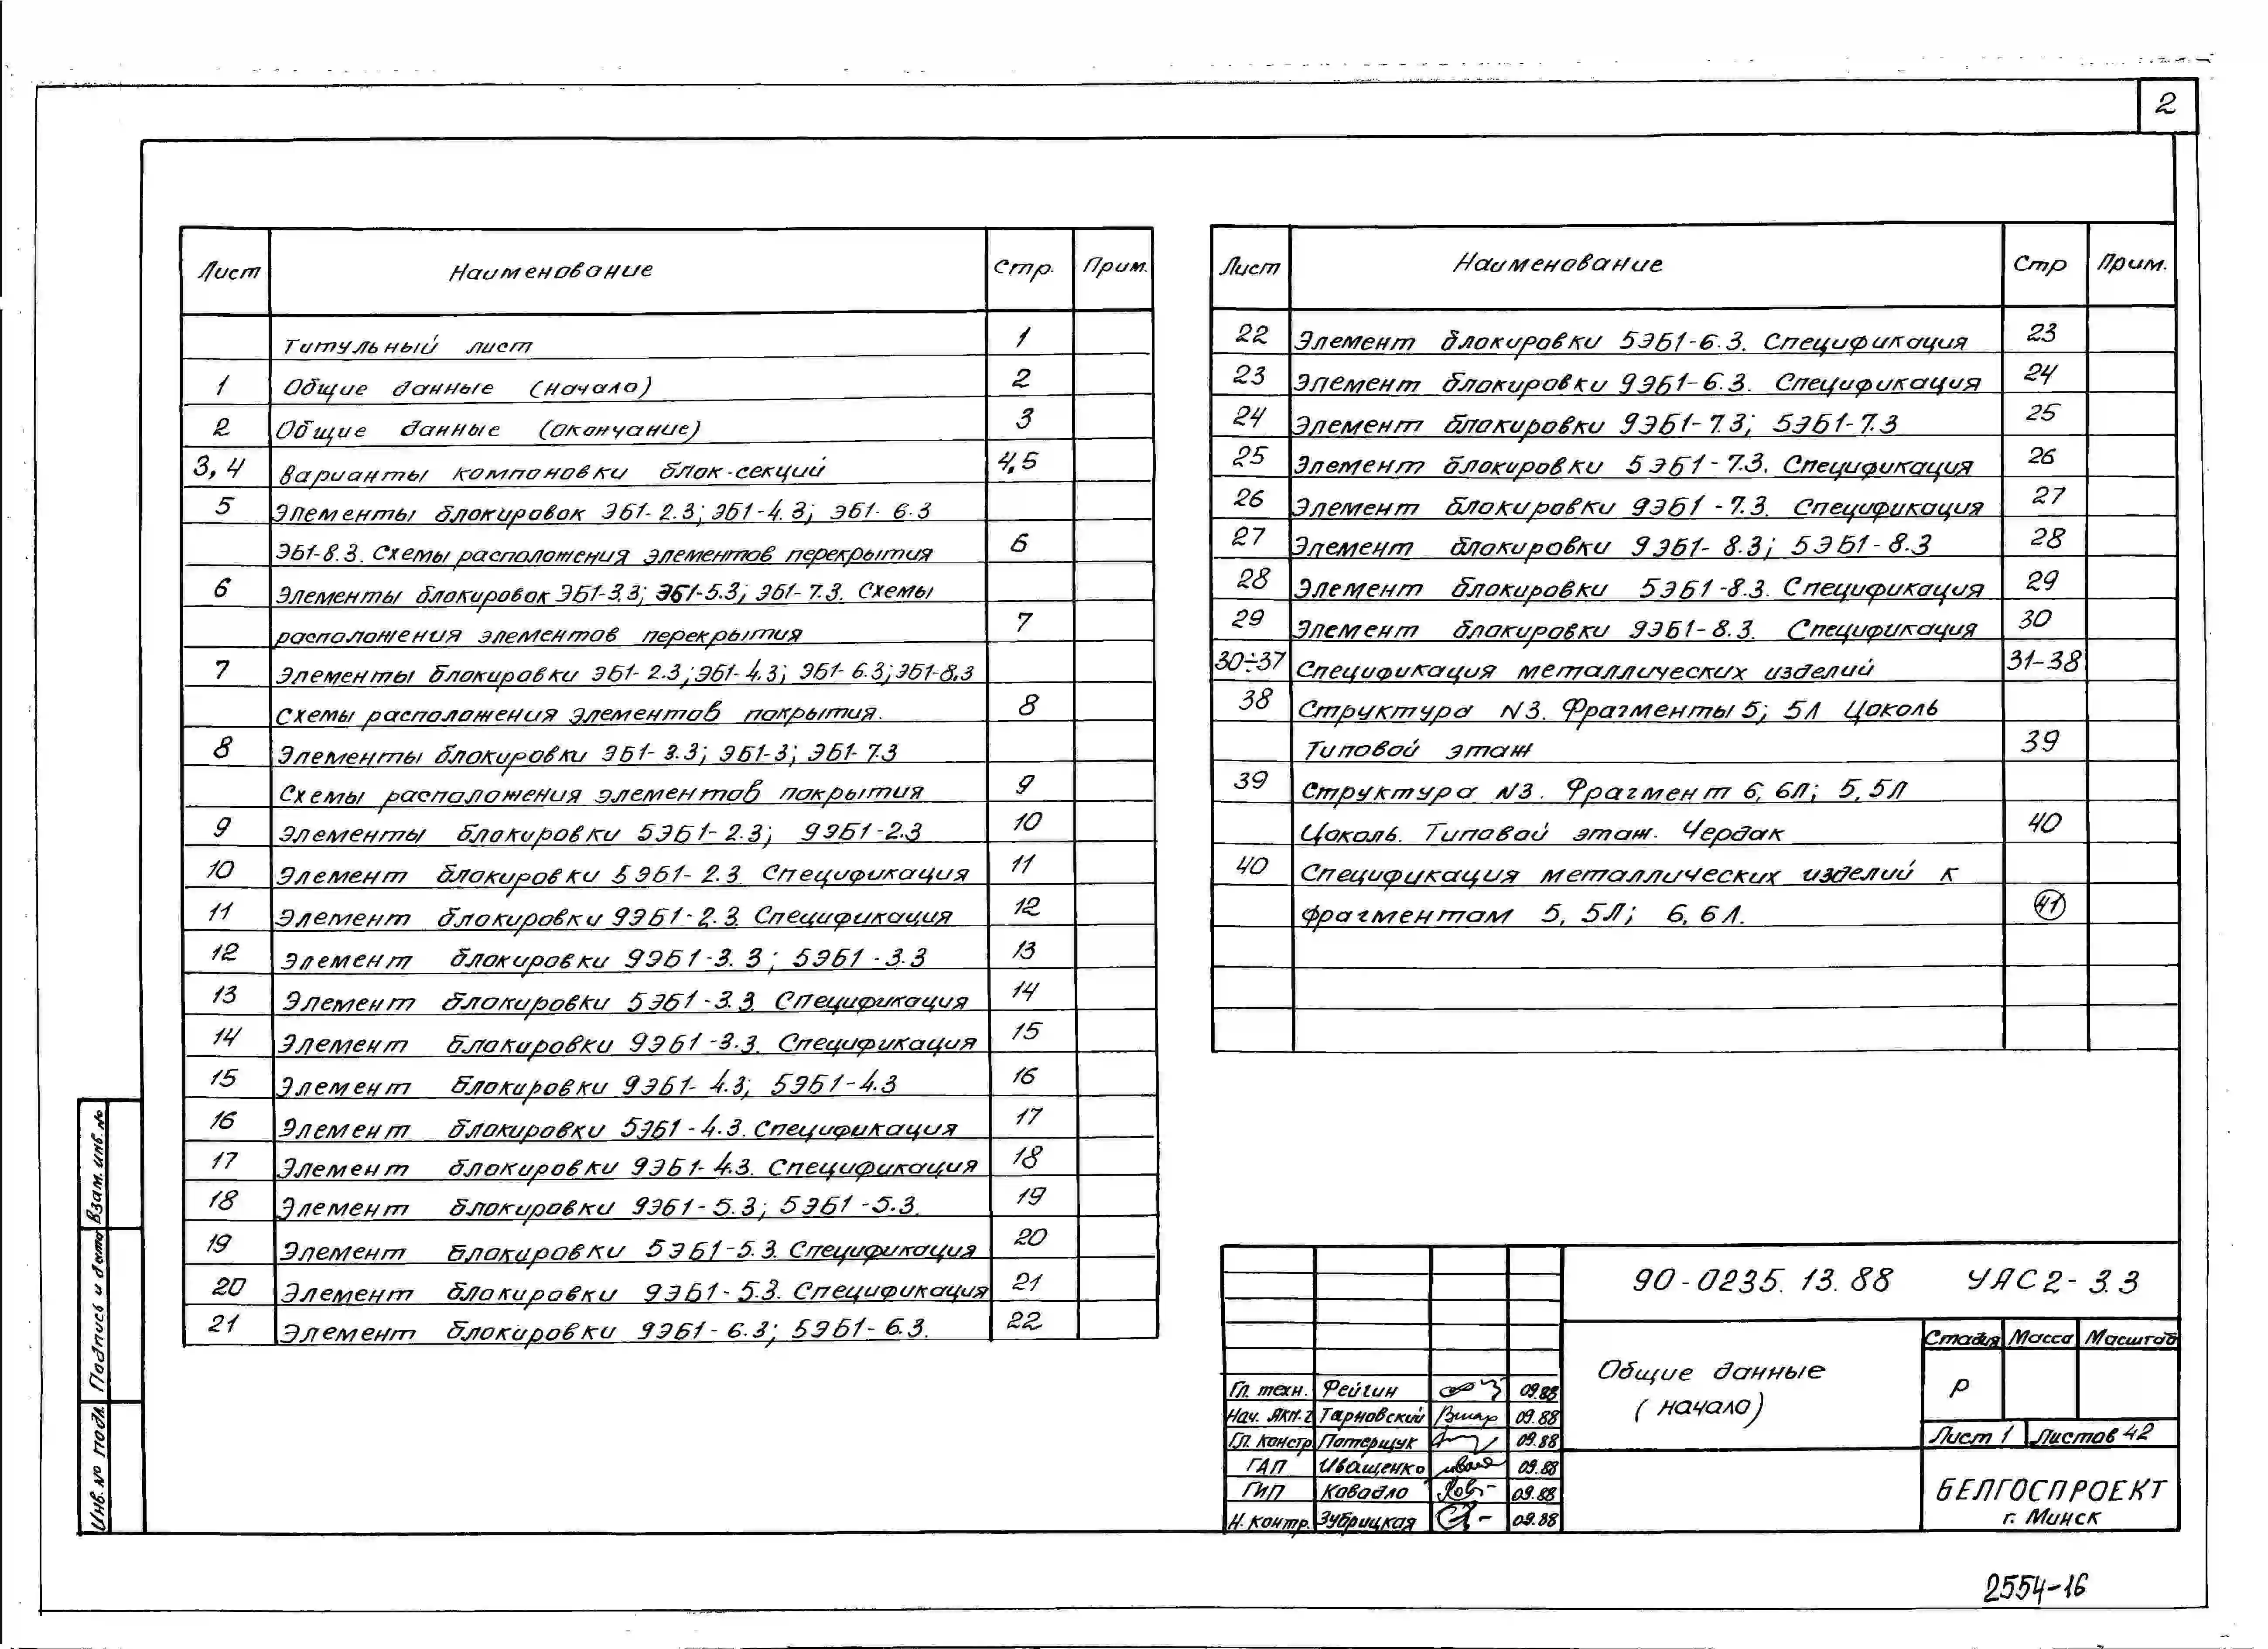 2
Лист Наименование Стр. Прим.
Титульный лист 1
1 Общие данные (начало) 2
2 Общие данные (окончание) 3
3, 4 Варианты компоновки блок-секций 4,5
5 Элементы блокировок ЭБ1-2.3; ЭБ1-4.3; ЭБ1-6.3
ЭБ1-8.3. Схемы расположения элементов перекрытия 6
6 Элементы блокировок ЭБ1-3.3; ЭБ1-5.3; ЭБ1-7.3. Схемы
расположения элементов перекрытия 7
7 Элементы блокировки ЭБ1-2.3; ЭБ1-4.3; ЭБ1-6.3; ЭБ1-8.3
Схемы расположения элементов покрытия. 8
8 Элементы блокировки ЭБ1-3.3; ЭБ1-3; ЭБ1-7.3
Схемы расположения элементов покрытия 9
9 Элементы блокировки 5ЭБ1-2.3; 9ЭБ1-2.3 10
10 Элемент блокировки 5ЭБ1-2.3. Спецификация 11
11 Элемент блокировки 9ЭБ1-2.3. Спецификация 12
12 Элемент блокировки 9ЭБ1-3.3; 5ЭБ1-3.3 13
13 Элемент блокировки 5ЭБ1-3.3. Спецификация 14
14 Элемент блокировки 9ЭБ1-3.3. Спецификация 15
15 Элемент блокировки 9ЭБ1-4.3; 5ЭБ1-4.3 16
16 Элемент блокировки 5ЭБ1-4.3. Спецификация 17
17 Элемент блокировки 9ЭБ1-4.3. Спецификация 18
18 Элемент блокировки 9ЭБ1-5.3; 5ЭБ1-5.3. 19
19 Элемент блокировки 5ЭБ1-5.3. Спецификация 20
20 Элемент блокировки 9ЭБ1-5.3. Спецификация 21
21 Элемент блокировки 9ЭБ1-6.3; 5ЭБ1-6.3. 22
Лист Наименование Стр Прим.
22 Элемент блокировки 5ЭБ1-6.3. Спецификация 23
23 Элемент блокировки 9ЭБ1-6.3. Спецификация 24
24 Элемент блокировки 9ЭБ1-7.3; 5ЭБ1-7.3 25
25 Элемент блокировки 5ЭБ1-7.3. Спецификация 26
26 Элемент блокировки 9ЭБ1-7.3. Спецификация 27
27 Элемент блокировки 9ЭБ1-8.3; 5ЭБ1-8.3 28
28 Элемент блокировки 5ЭБ1-8.3. Спецификация 29
29 Элемент блокировки 9ЭБ1-8.3. Спецификация 30
30÷37 Спецификация металлических изделий 31-38
38 Структура N3. Фрагменты 5; 5Л Цоколь
Типовой этаж 39
39 Структура N3. Фрагмент 6, 6Л; 5, 5Л
Цоколь. Типовой этаж. Чердак 40
40 Спецификация металлических изделий к
фрагментам 5, 5Л; 6, 6Л. 41
Взам. инв. №
Подпись и дата
Инв. № подл.
90-0235.13.88 УЯС2-3.3
Общие данные
(начало)
Стадия Масса Масштаб
Р
Лист 1 Листов 42
Гл. техн. Рейгин 09.88
Нач. ЯКМ-2 Тарновский 09.88
Гл. констр Потерщук 09.88
ГАП Иващенко 09.88
ГИП Ковадло 09.88
Н. контр. Зубрицкая 09.88
БЕЛГОСПРОЕКТ
г. Минск
2554-16